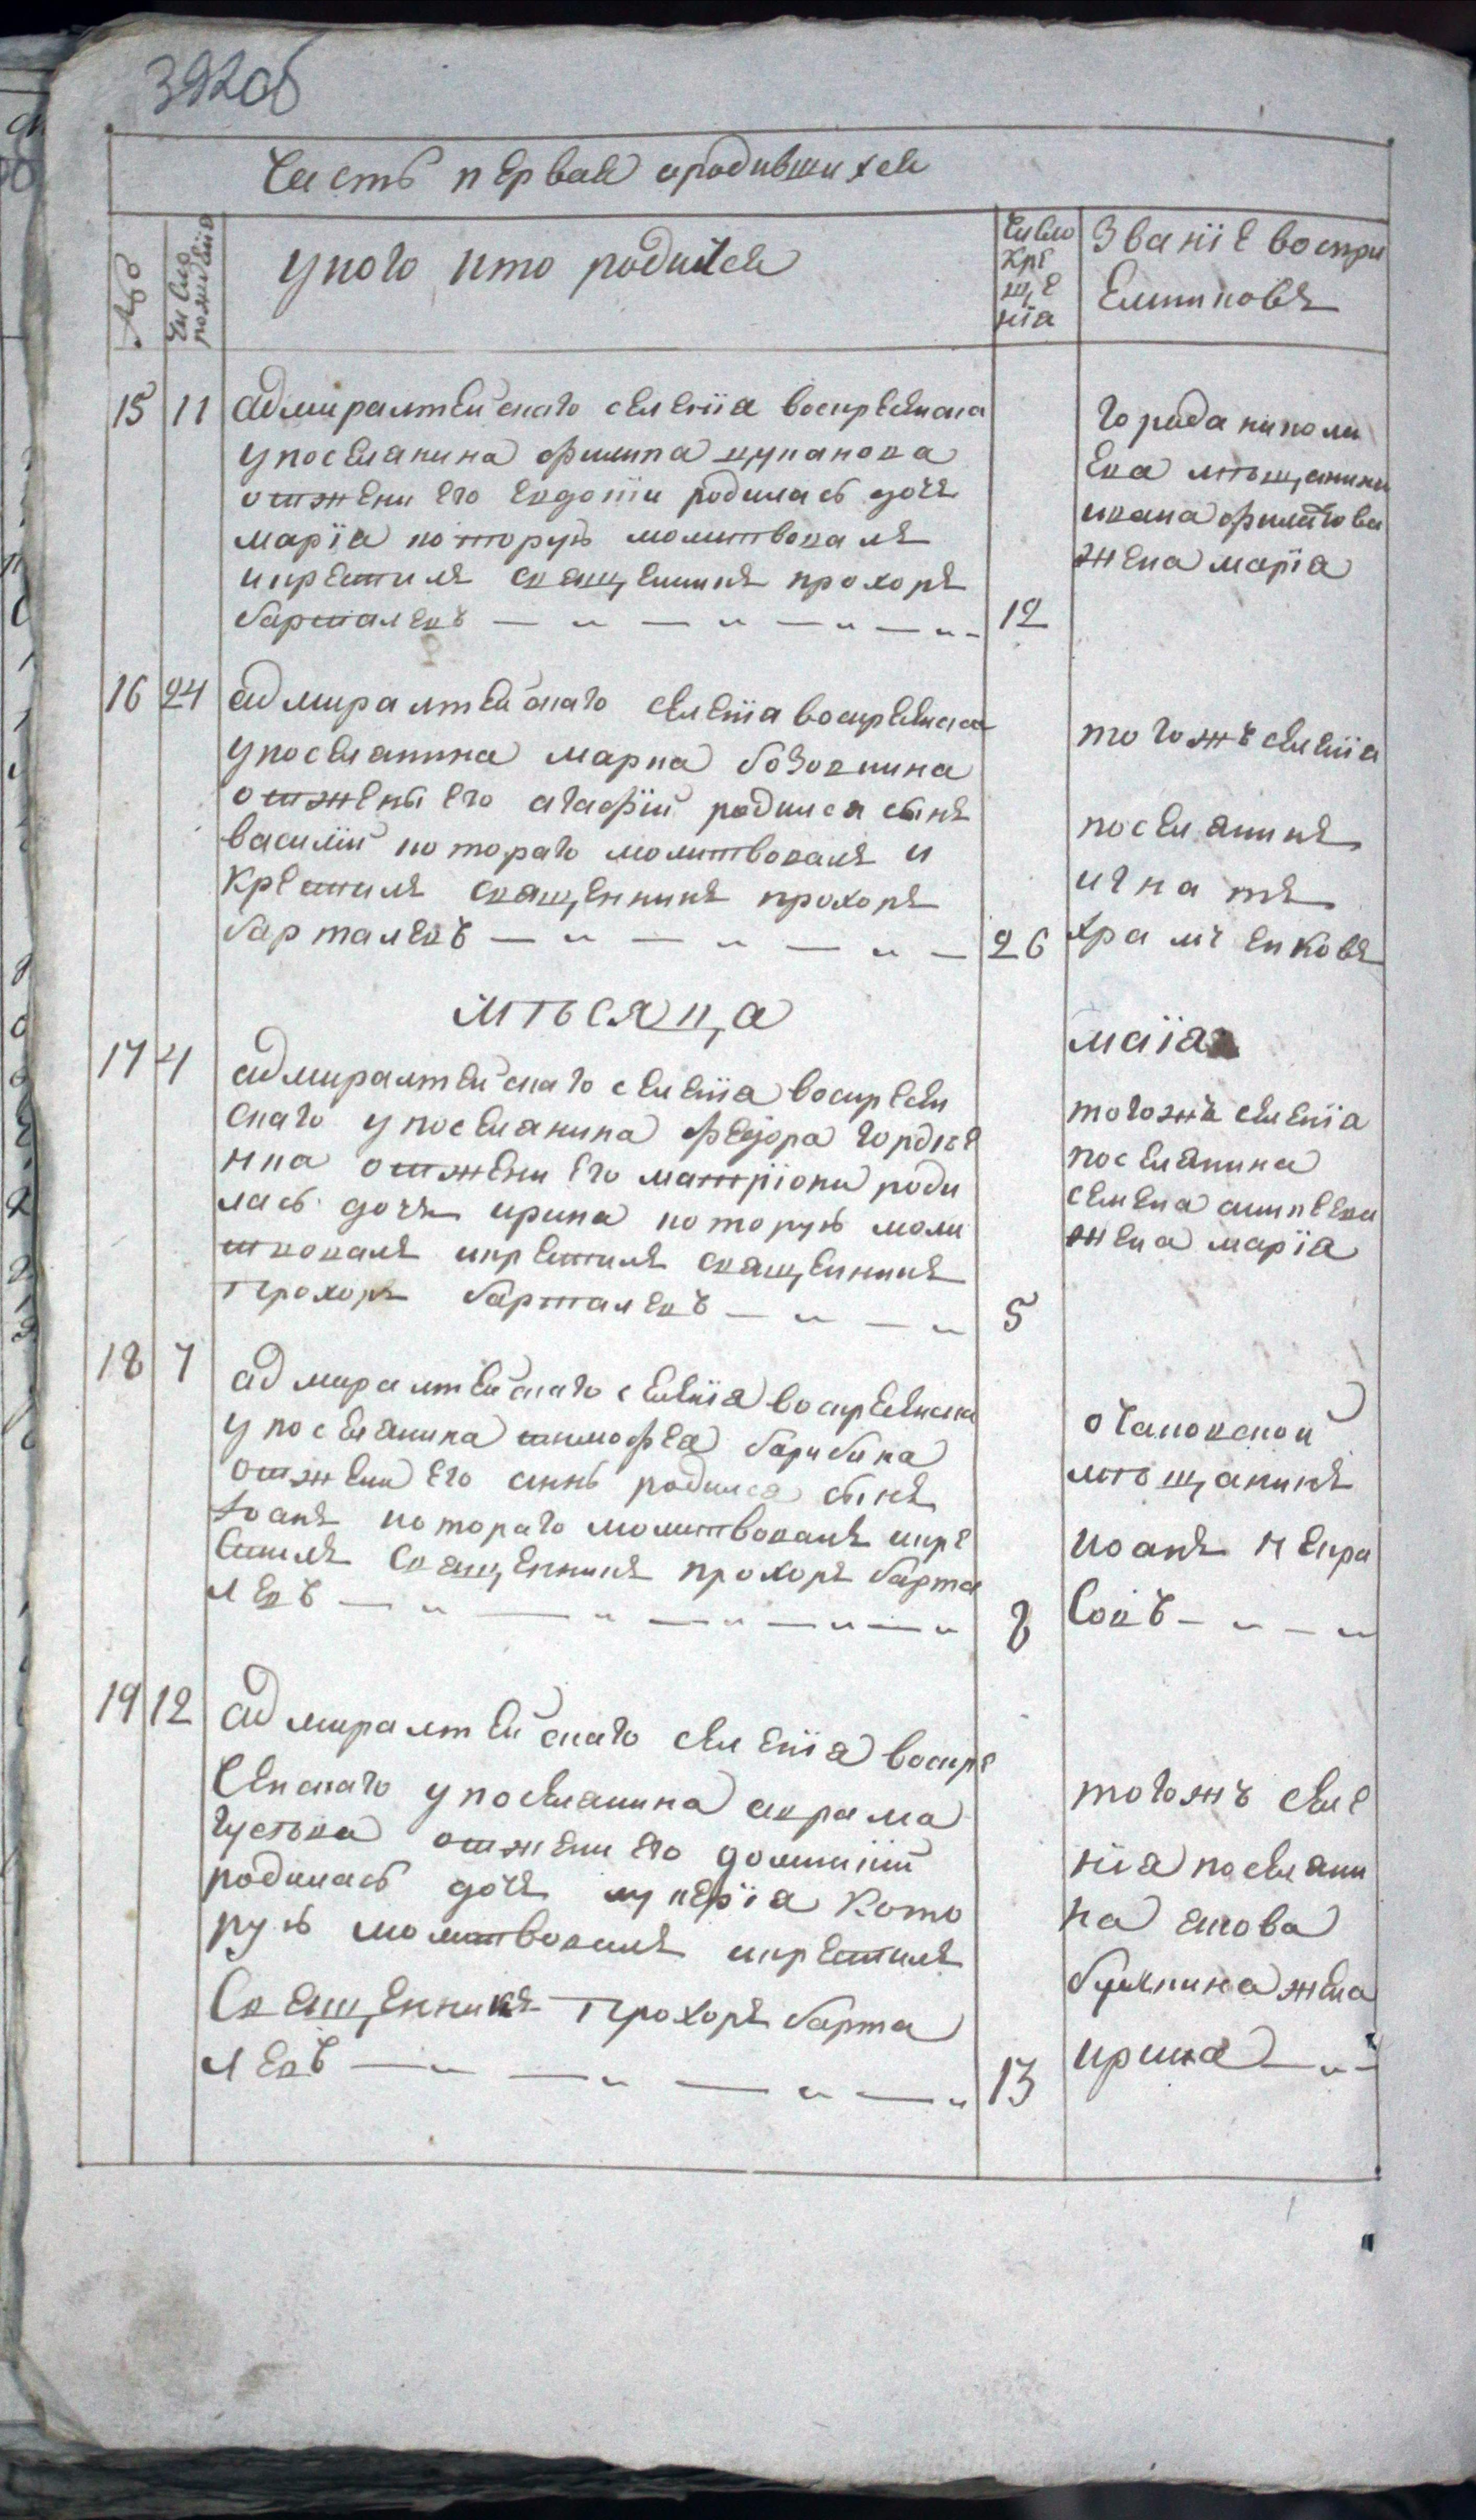 392об
Часть первая ородившихся
№
Число рожденiя
укого кто родился
Число
кре
ще
нiя
Званiе воспри
емниковъ
15 11 адмиралтейскаго селенiя воскресенска
упоселянина филипа цуканова
отжени его евдокiи родилась дочь
марiя которую молитвовалъ
икрестилъ священникъ прохоръ
барталевъ 12
города никола
ева мѣщанина
ивана филатова
жена марiя
16 24 адмиралтейскаго селенiя воскресенска
упоселянина марка бозовкина
отжены его агафiи родился сынъ
василiй котораго молитвовалъ и
крестилъ священникъ прохоръ
барталевъ 26
тогожъ селенiя
поселянинъ
игнатъ
храмченковъ
мѣсяца маiя
17 4 адмиралтейскаго селенiя воскресен
скаго упоселянина федора гордѣе
нка отжени его матрiони роди
лась дочь ирина которую моли
твовалъ икрестилъ священникъ
прохоръ барталевъ 5
тогожъ селенiя
поселянина
семена
жена марiя
18 7 адмиралтейскаго селенiя воскресенска
упоселянина тимофея барибина
отжени его анни родился сынъ
Iоанъ котораго молитвовалъ икре
стилъ священникъ прохоръ барта
левъ 8
очаковской
мѣщанинъ
иоанъ некра
совъ
19 12 адмиралтейскаго селенiя воскре
сенскаго упоселянина аврама
густова отжени его домникiи
родилась дочь лукерiя кото
рую молитвовалъ икрестилъ
Священникъ Прохоръ барта
левъ 13
тогожъ селе
нiя поселяни
на якова
булкина жена
ирина